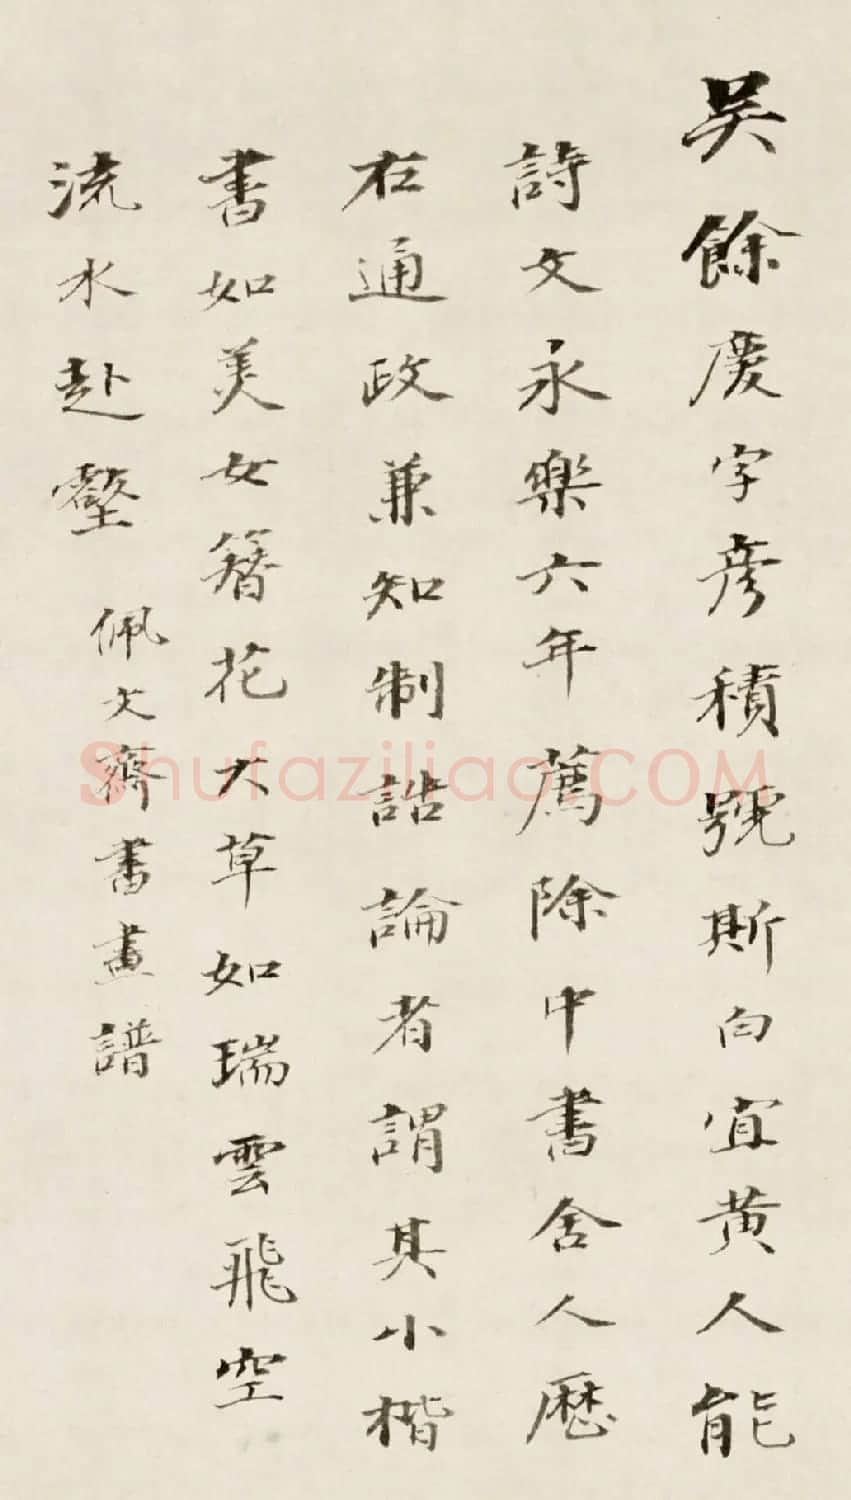 吴餘慶字彦積號斯白宜黄人能
詩文永樂六年薦除中書舍人歷
右通政兼知制誥論者謂其小楷
書如美女簪花大草如瑞雲飛空
流水赴壑
佩文齋書畫譜
Shufaziliao.COM